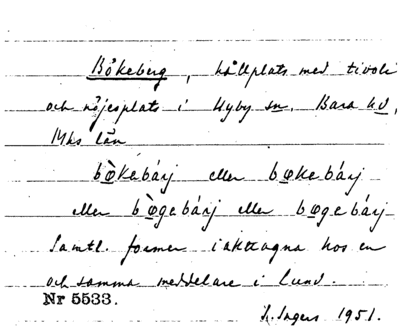 Bökeberg, hållplats med tivoli
och nöjesplats i Hyby sn. Bara hd,
Mhs län
bø̀kebárj eller bøkebárj
eller bø̀gebárj eller bøgebárj
Samtl. former iakttagna hos en
och samma meddelare i Lund.
Nr 5533.
S. Ingers 1951.